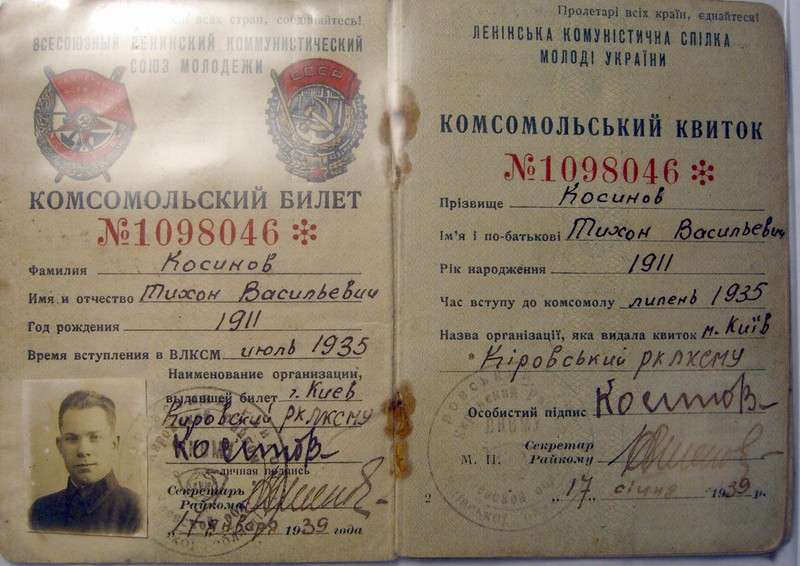 всех стран, соединяйтесь!
ВСЕСОЮЗНЫЙ ЛЕНИНСКИЙ КОММУНИСТИЧЕСКИЙ
СОЮЗ МОЛОДЕЖИ
СССР
КОМСОМОЛЬСКИЙ БИЛЕТ
№1098046 *
Фамилия Косинов
Имя и отчество Тихон Васильевич
Год рождения 1911
Время вступления в ВЛКСМ июль 1935
Наименование организации,
выдавшей билет г. Киев
Кировский РКЛКСМУ
Косинов
личная подпись
Секретарь
Райкома
"17" января 1939 года
Пролетарі всіх країн, єднайтеся!
ЛЕНІНСЬКА КОМУНІСТИЧНА СПІЛКА
МОЛОДІ УКРАЇНИ
КОМСОМОЛЬСЬКИЙ КВИТОК
№1098046 *
Прізвище Косинов
Ім'я і по-батькові Тихон Васильевич
Рік народження 1911
Час вступу до комсомолу липень 1935
Назва організації, яка видала квиток м. Київ
Кіровський РКЛКСМУ
Особистий підпис Косинов
Секретар
М. П. Райкому
2 "17" січня 1939 р.